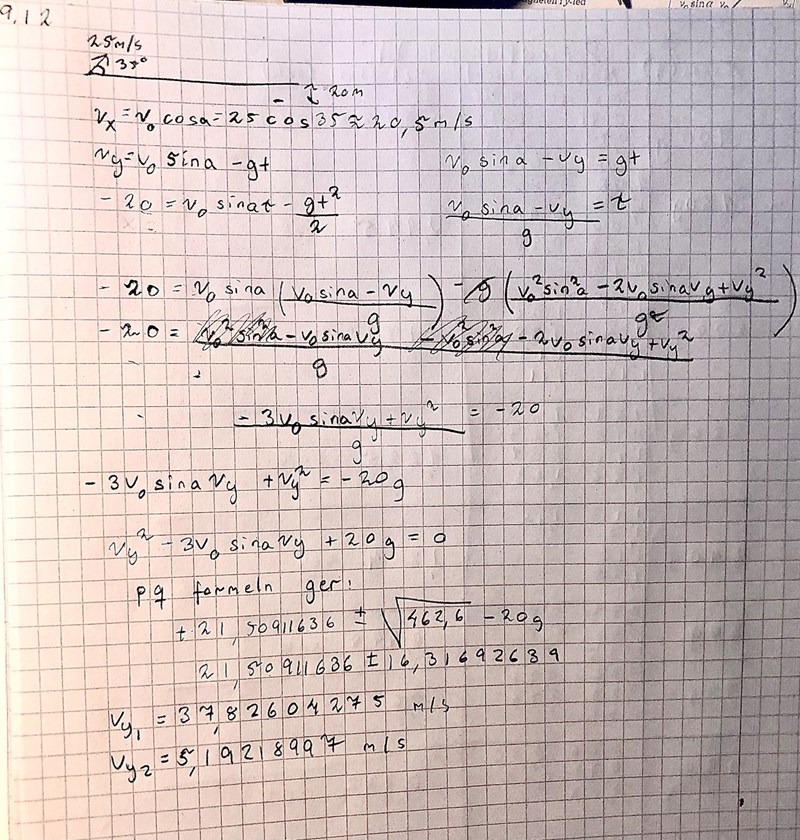 9.12
25m/s
35°
↕ 20m
v_x = v_0 cosa = 25 cos 35 ≈ 20,5 m/s
v_y = v_0 sina - gt
v_0 sina - v_y = gt
- 20 = v_0 sinat - gt²/2
(v_0 sina - v_y)/g = t
- 20 = v_0 sina ((v_0 sina - v_y)/g) - g((v_0² sin²a - 2v_0 sinav_y + v_y²)/g²)
- 20 = (v_0² sin²a - v_0 sinav_y - v_0² sin²a - 2v_0 sinav_y + v_y²)/g
(- 3v_0 sinav_y + v_y²)/g = -20
- 3v_0 sina v_y + v_y² = -20g
v_y² - 3v_0 sinav_y + 20g = 0
pq formeln ger:
+ 21,50911636 ± √462,6 - 20g
21,50911636 ± 16,31692639
v_y1 = 37,82604275 m/s
v_y2 = 5,19218997 m/s